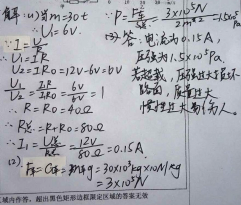 解: (1) 当m=30t
∴U₁=6V.
∵I=U/R
U₁=IR
U₂=IR₀=12V-6V=6V
U₁/U₂=IR/IR₀=6V/6V=1
∴R=R₀=40Ω
∴R总=R+R₀=80Ω
∴I₁=U总/R总=12V/80Ω=0.15A.
(2)
F压=G车=m车g=30×10³kg×10N/kg
=3×10⁵N
∴P=F压/S=3×10⁵N/2m²=1.5×10⁵Pa
(3) 答: 电流为0.15A,
压强为1.5×10⁵Pa.
若超载,压强过大,损坏
路面,质量过大
惯性过大易伤人.
域内作答,超出黑色矩形边框限定区域的答案无效